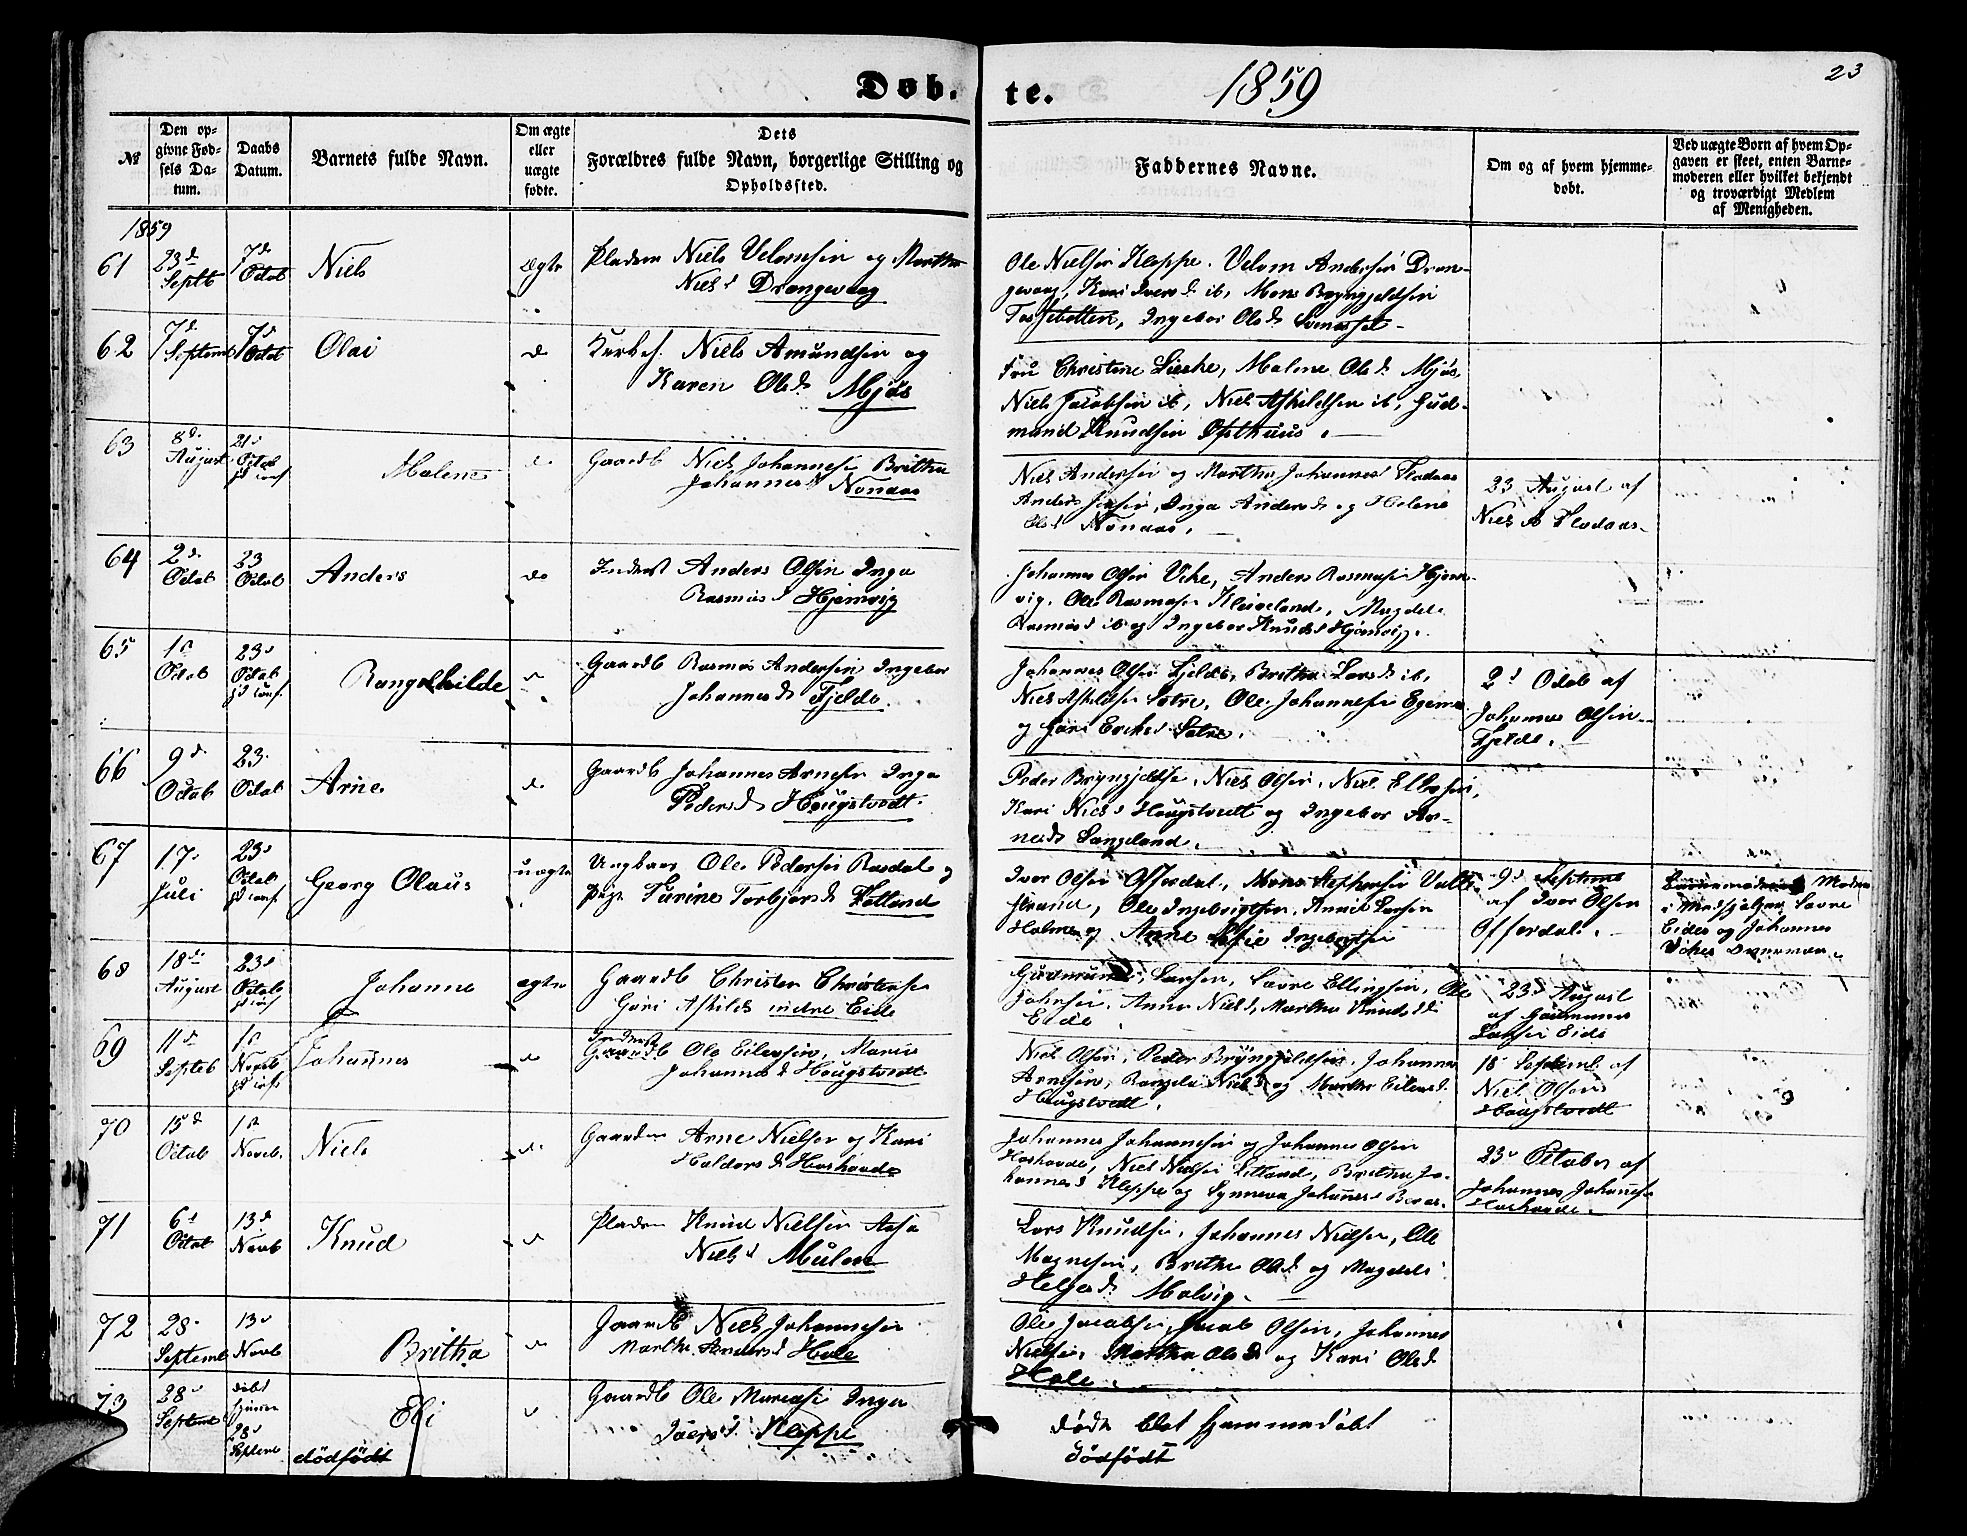 Døb-te. 1859
23
№
Den op-
givne Fød-
sels Da-
tum.
Daabs
Datum.
Barnets fulde Navn.
Om ægte
eller
uægte
fødte.
Dets
Forældres fulde Navn, borgerlige Stilling og
Opholdssted.
Faddernes Navne.
Om og af hvem hjemme-
døbt.
Ved uægte Børn af hvem Op-
gaven er skeet, enten Barne-
moderen eller hvilket bekjendt
og troværdigt Medlem
af Menigheden.
1859
61
23d
Septb
7d
Octob
Niels
Ægte
Pladsm Niels Velomsen og Martha
Niels d Drangevaag
Ole Nielsen Kleppe. Velom Andersen Dran-
gevaag, Kari Ivers d ib, Mons Bryngjeldsen
Tossebotten, Ingebor Ols d
62
7d
Septemb
7d
Octob
Olai
do
Niels Amundsen og
Karen Ols d Mjøs
Fru Christine Malene Ols d Mjøs
Niels Jacobsen ib, Niels Askildsen ib, Gud-
mund Knudsen Opsthuus.
63
8d
August
21d
Octob
Malene
do
Gaardb Niels Johannesen Britha
Johannes d Nonaas
Niels Andersen og Martha Johannes d Flodaas
Anders Inga Anders d og Helene
Ols d Nonaas.
23 August af
Niels A Flodaas
64
2d
Octob
23
Octob
Anders
do
Inderst Anders Olsen Inga
Rasmus d Hjemvig
Johannes Olsen Vike, Anders Rasmusen Hjem-
vig. Ole Rasmusen Klaveland, Magdele
Rasmus d ib og Ingebor Knuds d Hjemvig.
65
1d
Octob
23d
Octob
Rangelhilde
Gaardb Rasmus Andersen Ingebor
Johannes d Fjelde.
Johannes Olsen Fjelde, Britha Lars d ib,
Niels Askildsen Sætre, Ole Johannesen
og Eriks d Sætre.
2d Octob af
Johannes Olsen
Fjelde.
66
9d
Octob
23
Octob
Arne
do
Gaardb Johannes Arnesen Inga
Peders d Hougstvedt.
Peder Bryngjeldsen, Niels Olsen, Niels Ellingsen,
Kari Niels d Hougstvedt og Ingebor Ar-
nesd Langeland.
67
17
Juli
23d
Octob
Georg Olaus
uægte
Ungkarl Ole Pedersen Rosdal og
Pige Surine Torbjørs d Hetland
Iver Olsen Offerdal, Mons
Ole Ingebrigtsen, Knud Larsen
Holme og Anne Sofie Ingebrigtsen
9d Septemb
af Iver Olsen
Offerdal.
Moder
Eide og Johannes
68
18d
August
23d
Octob
Johanne
ægte
Gaardb Christen Christensen
Guri Askilds indre Eide
Gudmund Larsen, Lavre Ellingsen, Ole
Johnsen, Anna Niels d, Martha Knuds d
Eide.
23d August
af Gudmund
Larsen Eide
69
11d
Septeb
1d
Novb
Johannes
do
Inderst
Gaardb Ole Eilersen, Marie
Johannes d Hougstvedt
Niels Olsen, Peder Bryngjeldsen, Johannes
Arnesen, Rangela Niels d og Martha Eilers d
Hougstvedt.
18 Septemb af
Niels Olsen
Hougstvedt
70
15d
Octob
1d
Noveb.
Niels
do
Gaardm Arne Nielsen og Kari
Haldors d Haukoode
Johannes Johannesen og Johannes Olsen
Niels Nielsen Britha Jo-
hannes d Kleppe og Synneva Johannes d
23d October af
Johannes Johannesen
71
6d
Octob
13d
Novb
Knud
Pladsm Knud Nielsen Aasa
Niels d Mulen
Lars Knudsen, Johannes Nielsen, Ole
Magnesen, Britha Ols d og Magdele
Helges d Malvig.
72
28
Septemb
13d
Novb
Britha
Gaardb Niels Johannesen
Martha Anders d Hole
Ole Jacobsen, Jacob Olsen, Johannes
Nielsen, Martha Ols d og Kari Ols d
Hole.
73
28d
Septemb
døbt
hjemme
28d
Septemb
Eli
dödfödt
Gaardb Ole Inga
Kleppe
døde blot hjemmedøbt
dödfödt